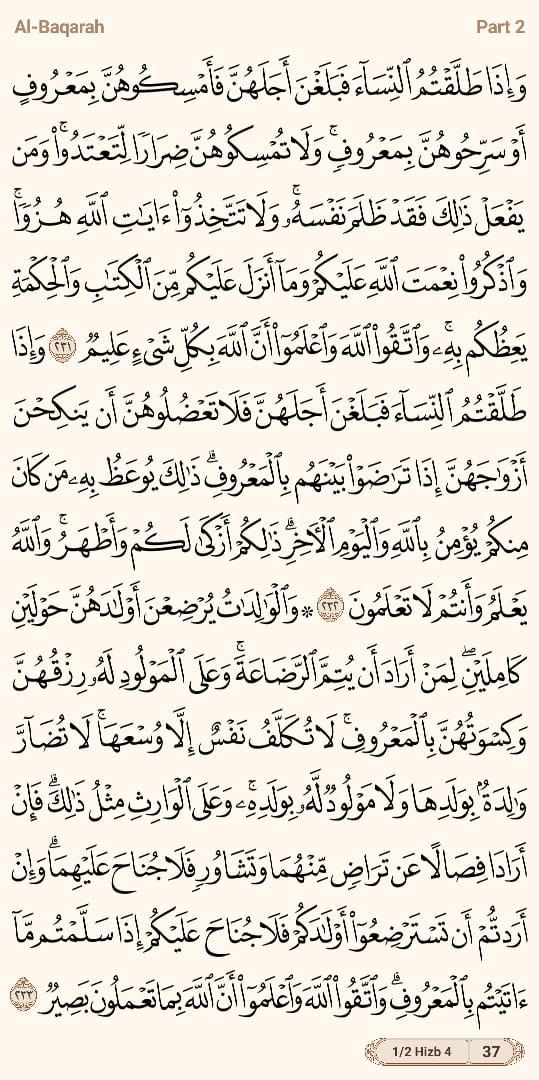 Al-Baqarah
Part 2
وَإِذَا طَلَّقْتُمُ ٱلنِّسَآءَ فَبَلَغْنَ أَجَلَهُنَّ فَأَمْسِكُوهُنَّ بِمَعْرُوفٍ
أَوْ سَرِّحُوهُنَّ بِمَعْرُوفٍۚ وَلَا تُمْسِكُوهُنَّ ضِرَارًا لِّتَعْتَدُوا۟ۚ وَمَن
يَفْعَلْ ذَٰلِكَ فَقَدْ ظَلَمَ نَفْسَهُۥۚ وَلَا تَتَّخِذُوٓا۟ ءَايَـٰتِ ٱللَّهِ هُزُوًاۚ
وَٱذْكُرُوا۟ نِعْمَتَ ٱللَّهِ عَلَيْكُمْ وَمَآ أَنزَلَ عَلَيْكُم مِّنَ ٱلْكِتَـٰبِ وَٱلْحِكْمَةِ
يَعِظُكُم بِهِۦۚ وَٱتَّقُوا۟ ٱللَّهَ وَٱعْلَمُوٓا۟ أَنَّ ٱللَّهَ بِكُلِّ شَىْءٍ عَلِيمٌ ٢٣١ وَإِذَا
طَلَّقْتُمُ ٱلنِّسَآءَ فَبَلَغْنَ أَجَلَهُنَّ فَلَا تَعْضُلُوهُنَّ أَن يَنكِحْنَ
أَزْوَٰجَهُنَّ إِذَا تَرَٰضَوْا۟ بَيْنَهُم بِٱلْمَعْرُوفِۗ ذَٰلِكَ يُوعَظُ بِهِۦ مَن كَانَ
مِنكُمْ يُؤْمِنُ بِٱللَّهِ وَٱلْيَوْمِ ٱلْـَٔاخِرِۗ ذَٰلِكُمْ أَزْكَىٰ لَكُمْ وَأَطْهَرُۚ وَٱللَّهُ
يَعْلَمُ وَأَنتُمْ لَا تَعْلَمُونَ ٢٣٢ ۞ وَٱلْوَٰلِدَٰتُ يُرْضِعْنَ أَوْلَـٰدَهُنَّ حَوْلَيْنِ
كَامِلَيْنِۖ لِمَنْ أَرَادَ أَن يُتِمَّ ٱلرَّضَاعَةَۚ وَعَلَى ٱلْمَوْلُودِ لَهُۥ رِزْقُهُنَّ
وَكِسْوَتُهُنَّ بِٱلْمَعْرُوفِۚ لَا تُكَلَّفُ نَفْسٌ إِلَّا وُسْعَهَاۚ لَا تُضَآرَّ
وَٰلِدَةٌۢ بِوَلَدِهَا وَلَا مَوْلُودٌ لَّهُۥ بِوَلَدِهِۦۚ وَعَلَى ٱلْوَارِثِ مِثْلُ ذَٰلِكَۗ فَإِنْ
أَرَادَا فِصَالًا عَن تَرَاضٍ مِّنْهُمَا وَتَشَاوُرٍ فَلَا جُنَاحَ عَلَيْهِمَاۗ وَإِنْ
أَرَدتُّمْ أَن تَسْتَرْضِعُوٓا۟ أَوْلَـٰدَكُمْ فَلَا جُنَاحَ عَلَيْكُمْ إِذَا سَلَّمْتُم مَّآ
ءَاتَيْتُم بِٱلْمَعْرُوفِۗ وَٱتَّقُوا۟ ٱللَّهَ وَٱعْلَمُوٓا۟ أَنَّ ٱللَّهَ بِمَا تَعْمَلُونَ بَصِيرٌ ٢٣٣
1/2 Hizb 4
37